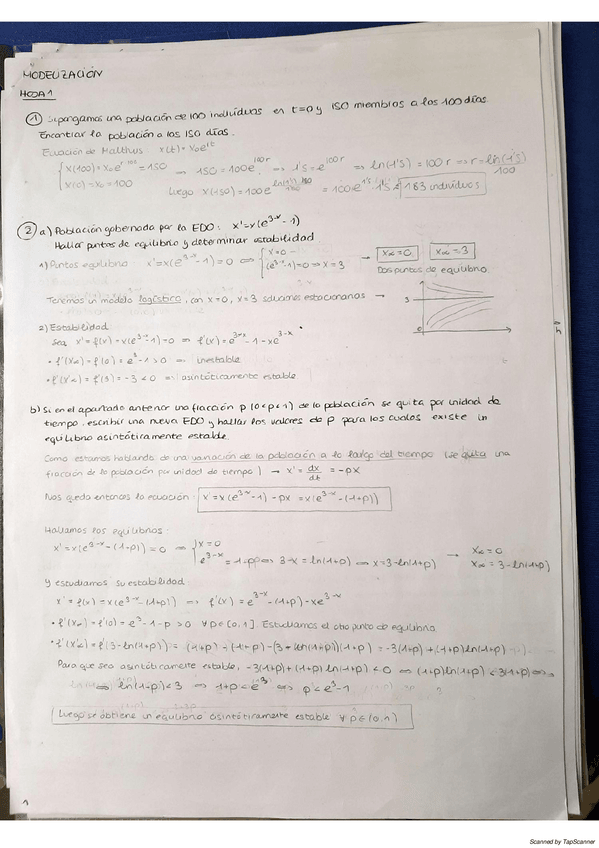 MODELIZACIÓN
HOJA 1
① Supongamos una población de 100 individuos en t=0 y 150 miembros a los 100 días.
Encontrar la población a los 150 días.
Ecuación de Malthus x(t) = x₀e^{rt}
{ x(100) = x₀e^{r·100} = 150 ⇒ 150 = 100e^{100r} ⇒ 1'5 = e^{100r} ⇒ ln(1'5) = 100r ⇒ r = ln(1'5)/100
x(0) = x₀ = 100
Luego x(150) = 100e = 183 individuos
② a) Población gobernada por la EDO: x' = x(e^{3-x} - 1)
Hallar puntos de equilibrio y determinar estabilidad
1) Puntos equilibrio x' = x(e^{3-x} - 1) = 0 ⇔ { x = 0 → x∞ = 0 x∞ = 3
(e^{3-x} - 1) = 0 ⇒ x = 3 Dos puntos de equilibrio
Tenemos un modelo logístico, con x = 0, x = 3 soluciones estacionarias → 3
0
2) Estabilidad
Sea x' = f(x) = x(e^{3-x} - 1) = 0 ⇒ f'(x) = e^{3-x} - 1 - xe^{3-x}
• f'(x∞) = f'(0) = e³ - 1 > 0 ⇒ inestable
• f'(x∞) = f'(3) = -3 < 0 ⇒ asintóticamente estable
b) Si en el apartado anterior una fracción p (0<p<1) de la población se quita por unidad de
tiempo, escribir una nueva EDO y hallar los valores de p para los cuales existe un
equilibrio asintóticamente estable.
Como estamos hablando de una variación de la población a lo largo del tiempo (se quita una
fracción de la población por unidad de tiempo) → x' = dx/dt = -px
Nos queda entonces la ecuación: x' = x(e^{3-x} - 1) - px = x(e^{3-x} - (1+p))
Hallamos los equilibrios:
x' = x(e^{3-x} - (1+p)) = 0 ⇒ { x = 0 → x∞ = 0
e^{3-x} = 1+p ⇔ 3-x = ln(1+p) ⇔ x = 3 - ln(1+p) x∞ = 3 - ln(1+p)
Y estudiamos su estabilidad
x' = f(x) = x(e^{3-x} - (1+p)) ⇒ f'(x) = e^{3-x} - (1+p) - xe^{3-x}
• f'(x∞) = f'(0) = e³ - 1 - p > 0 ∀p∈(0,1]. Estudiamos el otro punto de equilibrio
• f'(x∞) = f'(3 - ln(1+p)) = (1+p) - (1+p) - (3 - ln(1+p))(1+p) = -3(1+p) + (1+p)ln(1+p)
Para que sea asintóticamente estable, -3(1+p) + (1+p)ln(1+p) < 0 ⇔ (1+p)ln(1+p) < 3(1+p) ⇔
⇔ ln(1+p) < 3 ⇔ 1+p < e³ ⇔ p < e³ - 1
Luego se obtiene un equilibrio asintóticamente estable ∀p∈(0,1)
1
Scanned by TapScanner